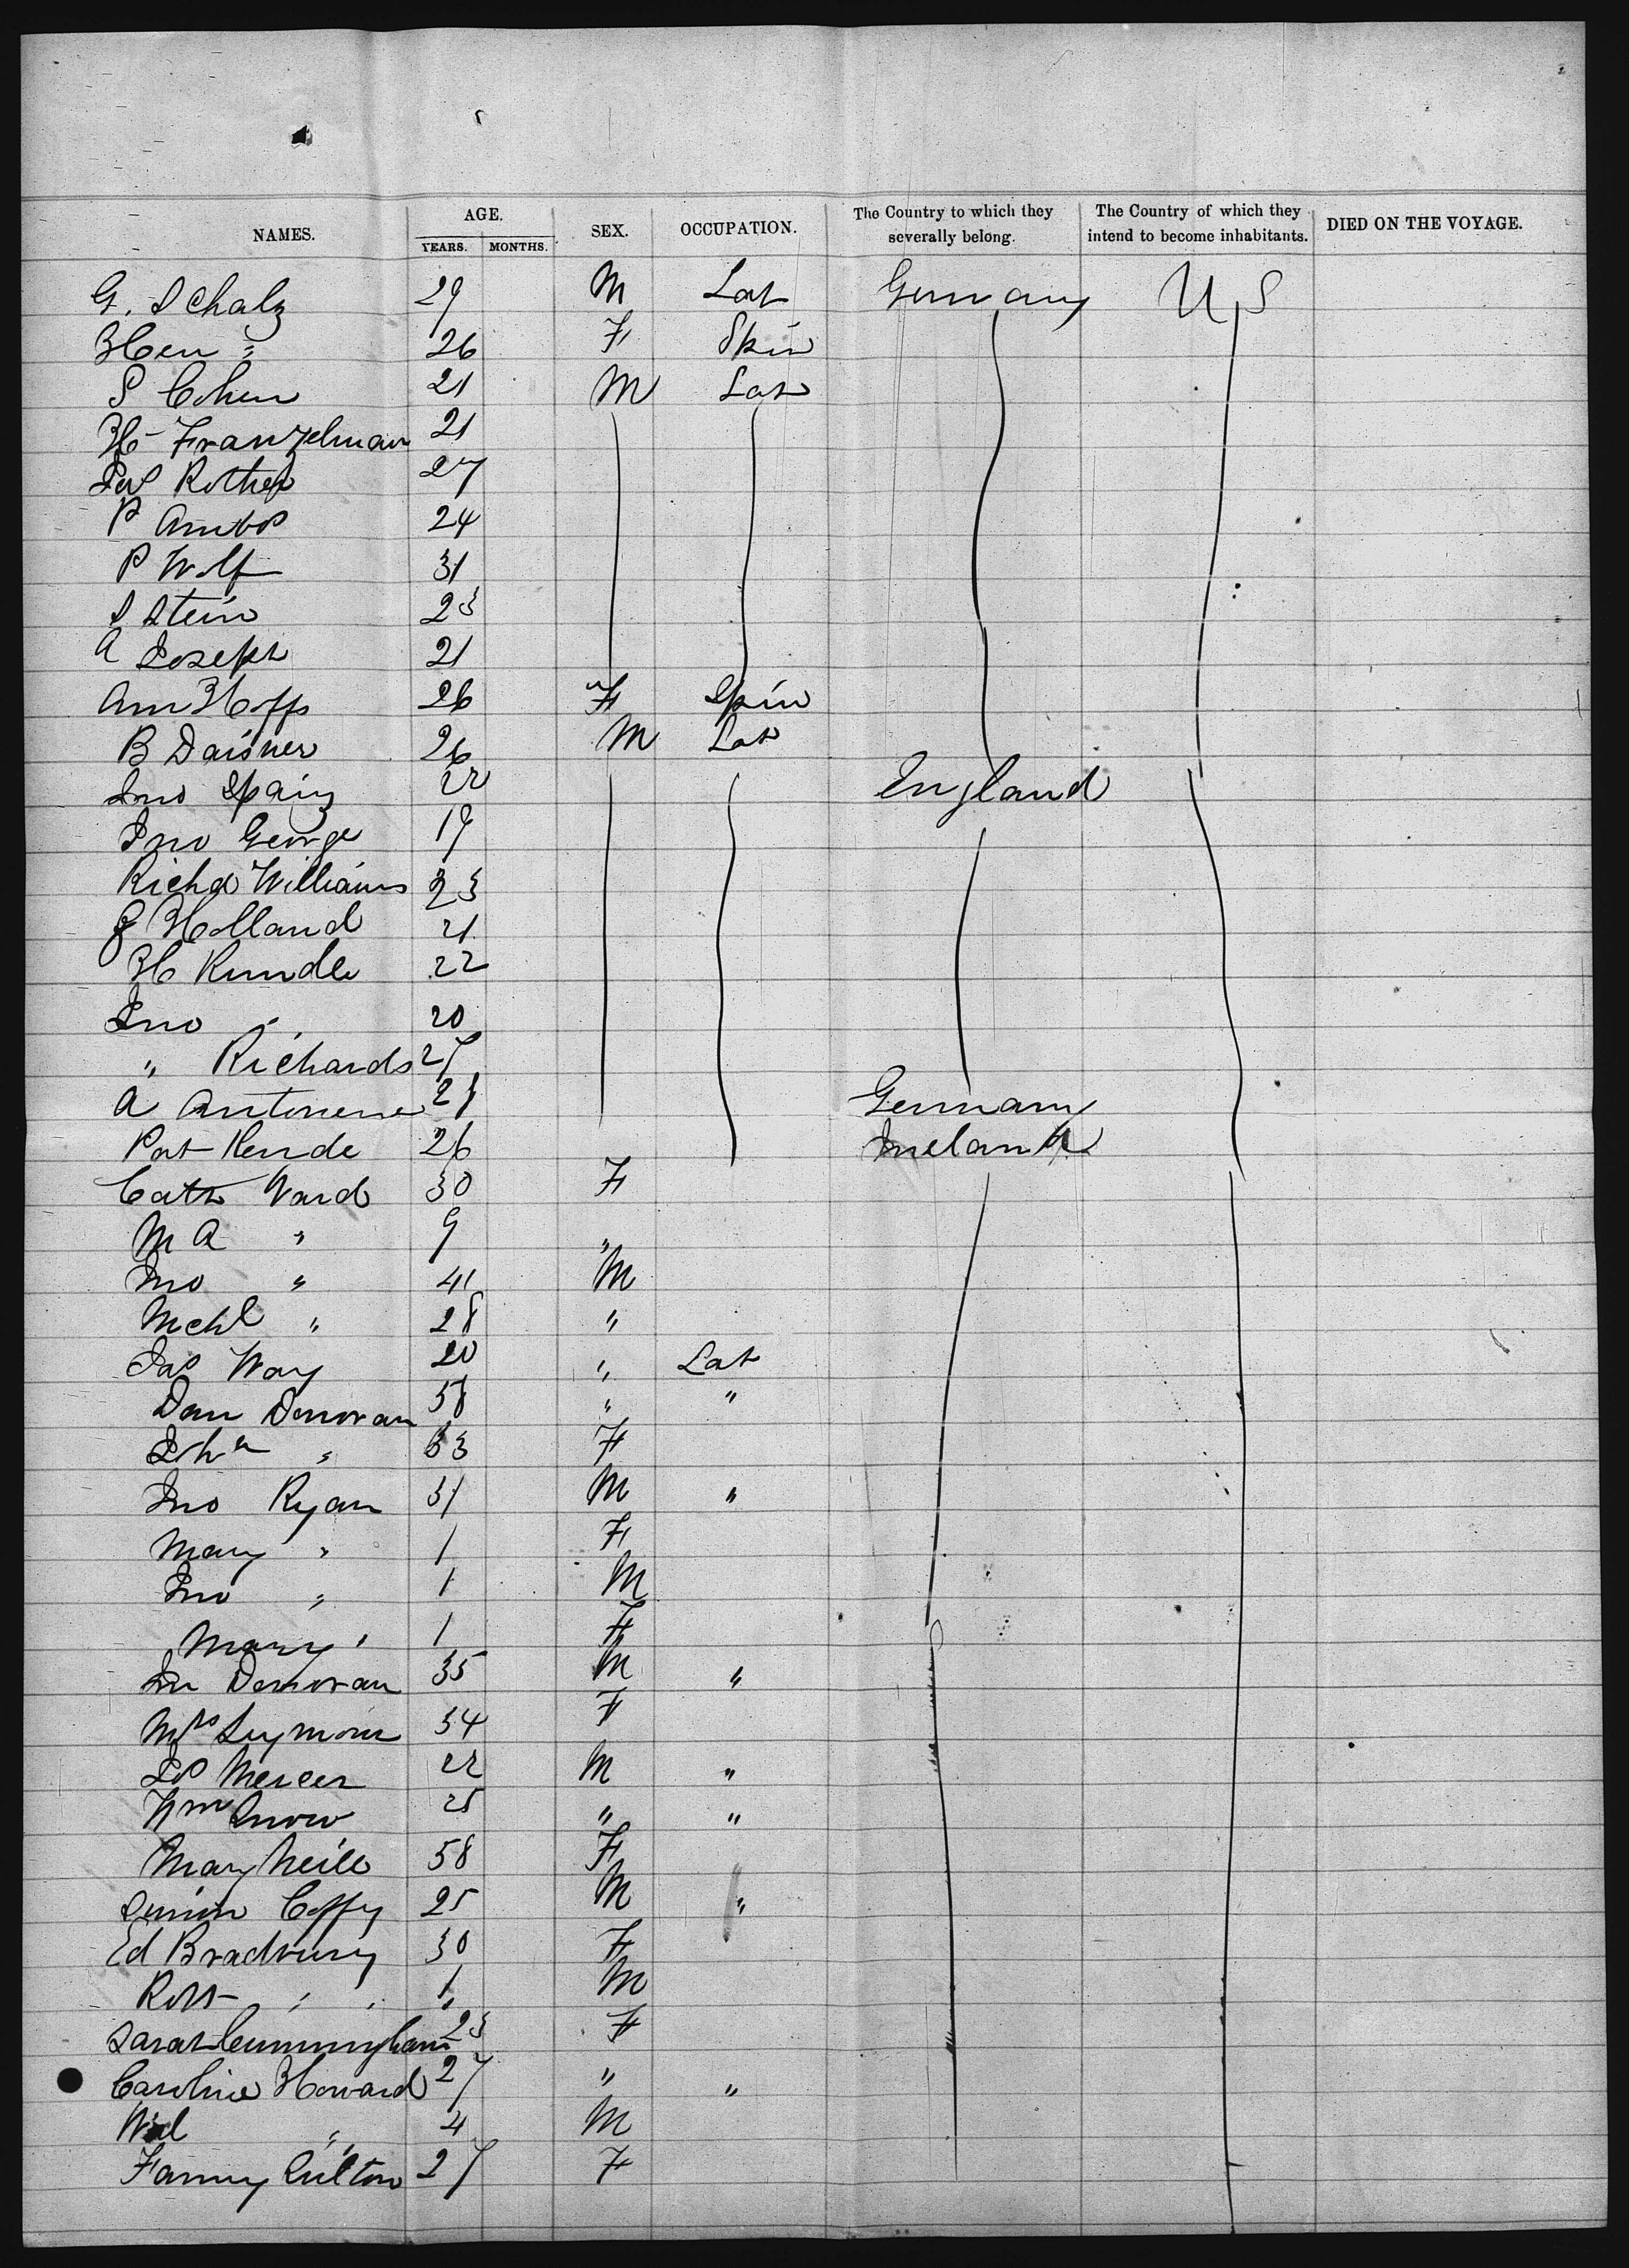 NAMES. AGE. YEARS. MONTHS. SEX. OCCUPATION. The Country to which they severally belong. The Country of which they intend to become inhabitants. DIED ON THE VOYAGE.
G. Schalz 29 M Lab Germany U S
Hen " 26 F Spin
S Cohen 21 M Lab
H Franzelman 21
Jas Rother 27
P Ambos 24
P Wolf 31
S Stein 23
A Joseph 21
Ann Hoffs 26 F Spin
B Daisner 26 M Lab
Jno 22 England
Jno George 19
Richd Williams 23
J Holland 21
H Rundle 22
Jno " 20
" Richards 27
A Antonene 28 Germany
Pat 26 Ireland
Cath Ward 30 F
M A " 9 "
Jno " 41 M
Mchl " 28 "
Jas Way 20 " Lab
Dan Donovan 58 " "
" 53 F
Jno Ryan 31 M "
Mary " 1 F
Jno " 1 M
Mary " 1 F
Donovan 35 M "
Mrs 34 F
Mercer 22 M "
Wm Snow 25 " "
Mary Neill 58 F
Coffy 25 M "
Ed Bradbury 30 F
Robt " 1 M
Sarah Cunningham 23 F
Caroline Howard 27 " "
" 4 M
Fanny 27 F